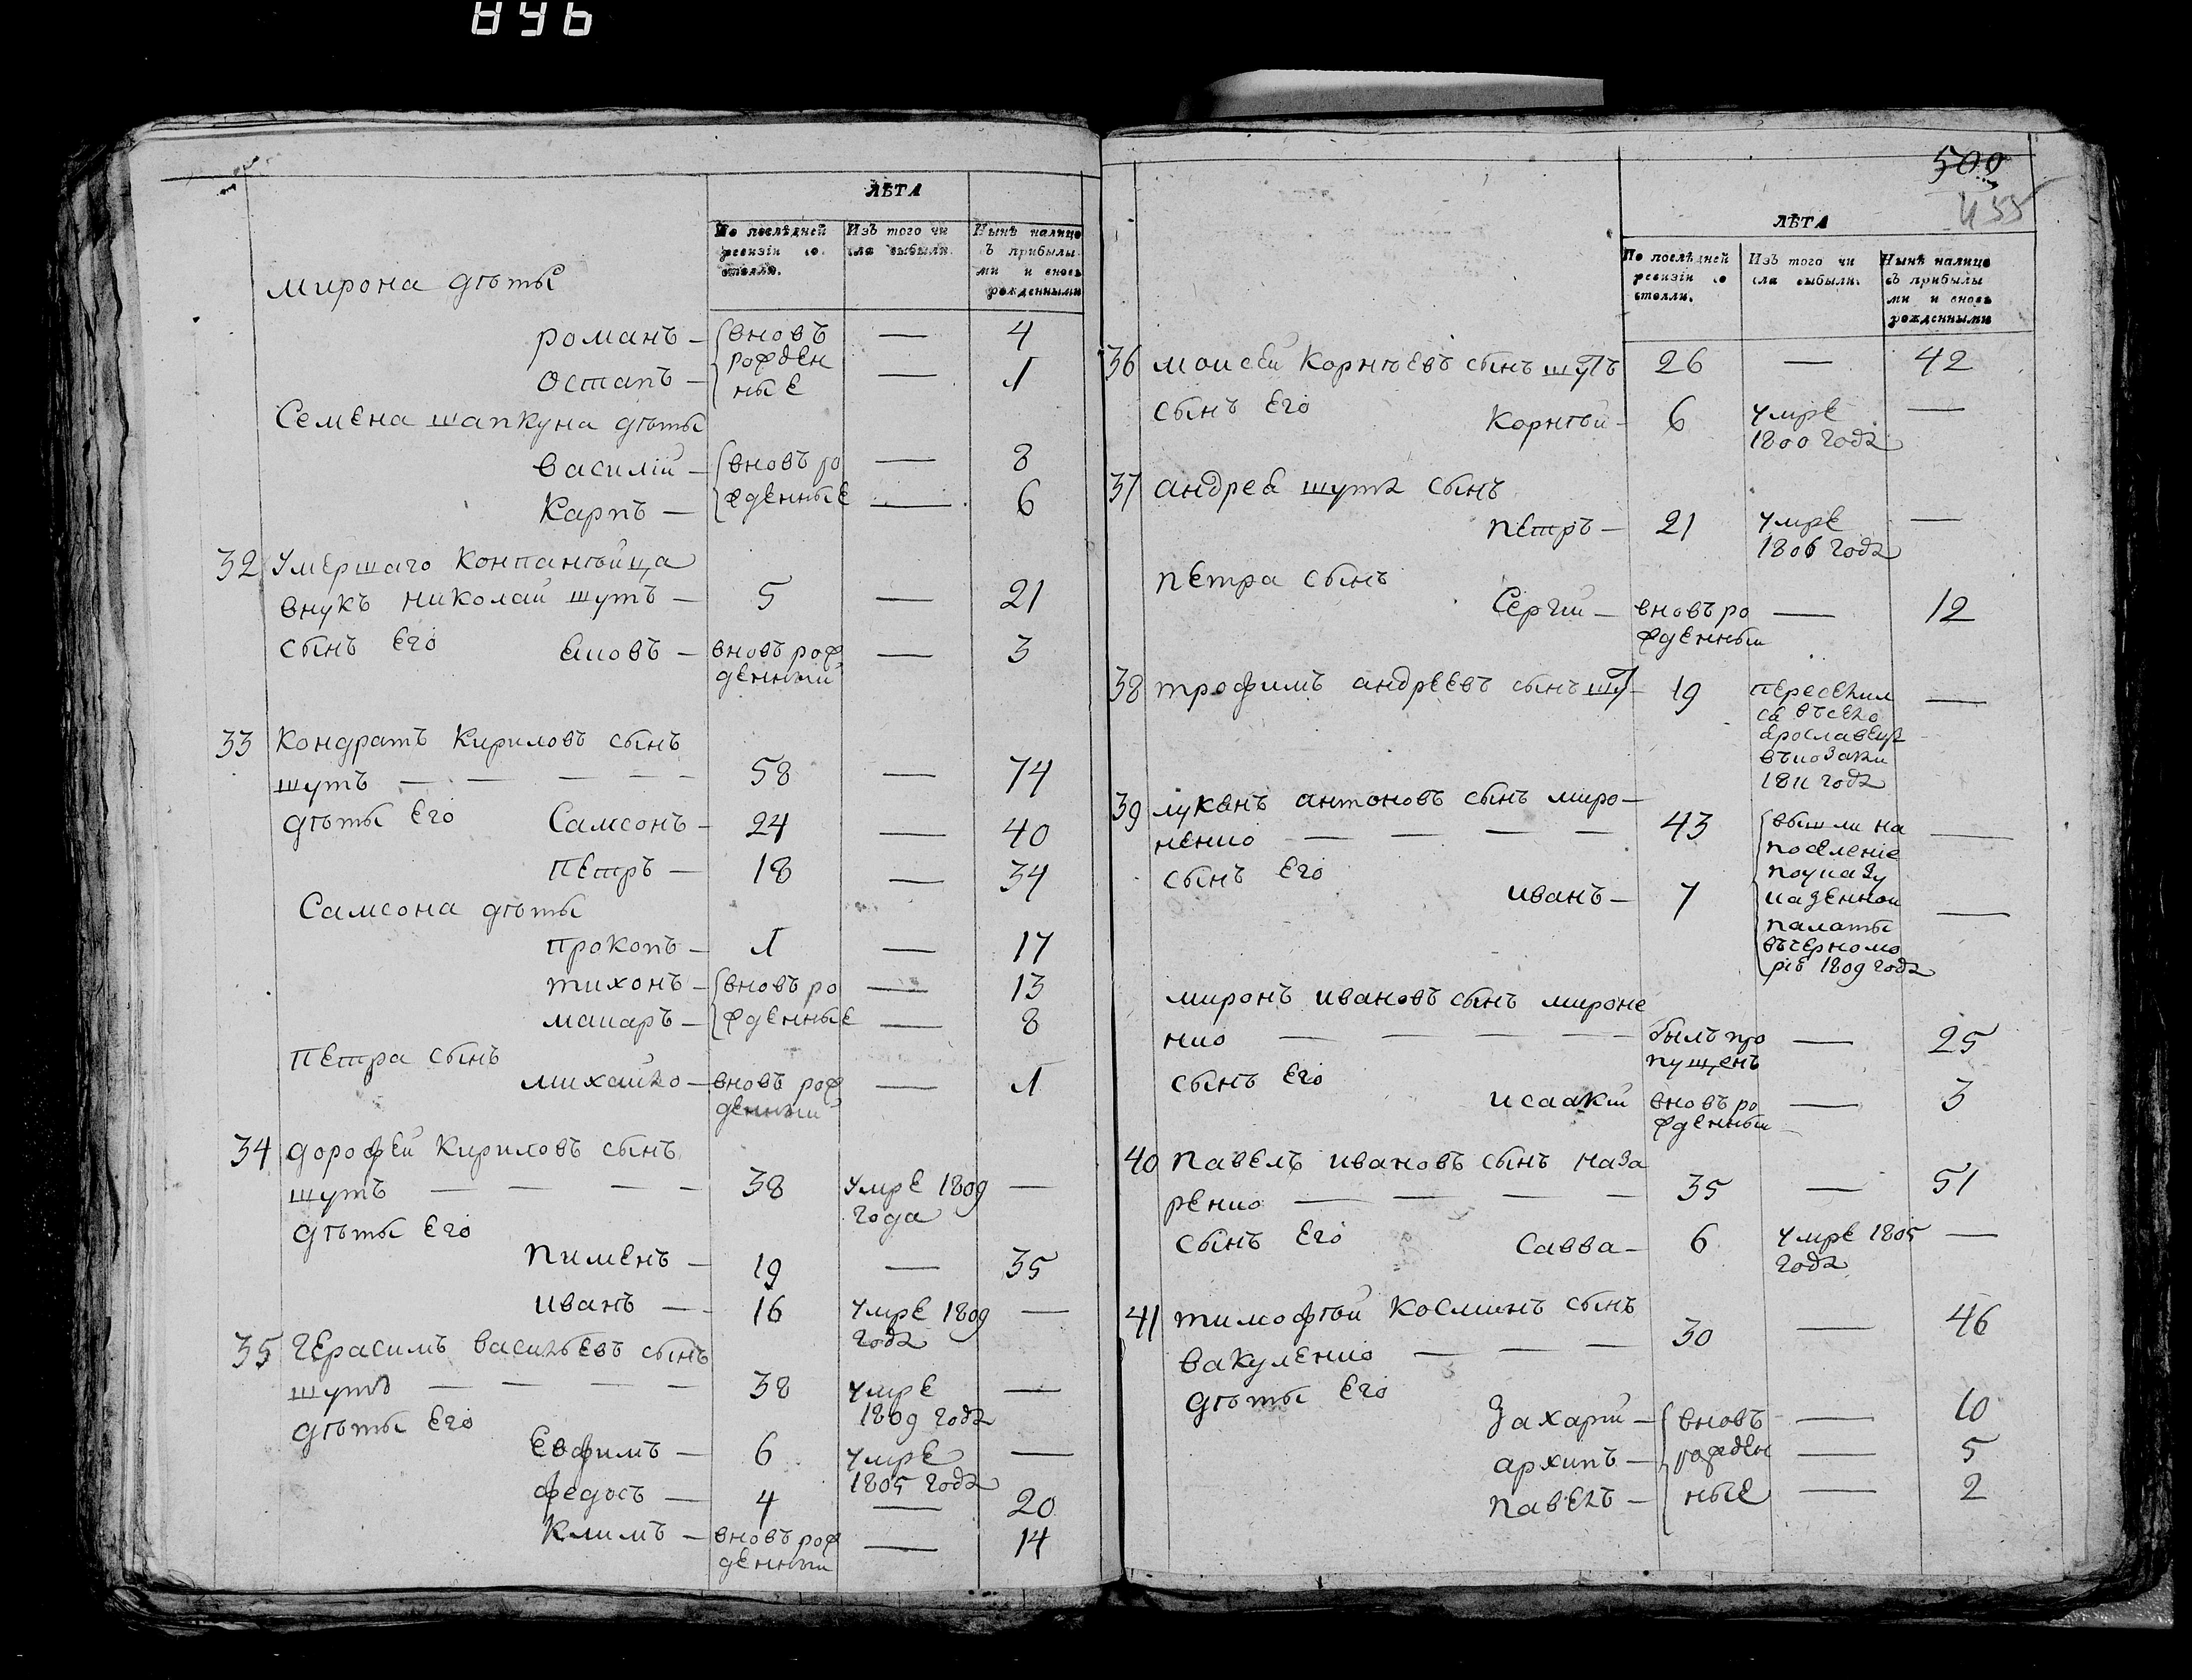 896
ЛѢТА
По послѣдней ревизіи состояло.
Изъ того числа выбыли.
Нынѣ налицо съ прибылыми и вновь рожденными
мирона дѣты
романъ — вновь 4
рожден
Остапъ — ные — 1
Семена шапкуна дѣты
василій — вновь ро — 8
Карпъ — жденные — 6
32 Умершаго Компанѣйца
внукъ николай шутъ — 5 — 21
сынъ Его Яковъ — вновь рож — 3
денный
33 Кондратъ Кириловъ сынъ
шутъ — 58 — 74
дѣты Его Самсонъ — 24 — 40
Петръ — 18 — 34
Самсона дѣты
прокопъ — 1 — 17
тихонъ — вновь ро — 13
макаръ — жденные — 8
Петра сынъ
михайло — вновь рож — 1
денный
34 дорофей Кириловъ сынъ
шутъ — 38 умре 1809 —
года
дѣты Его
Пименъ — 19 — 35
иванъ — 16 умре 1809 —
года
35 Герасимъ васильевъ сынъ
шутъ — 38 умре —
1809 года
дѣты Его
Евфимъ — 6 умре —
1805 года
федосъ — 4 — 20
Климъ — вновь рож — 14
денный
500
455
ЛѢТА
По послѣдней ревизіи состояли.
Изъ того числа выбыли.
Нынѣ налицо съ прибылыми и вновь рожденными
36 моисей Корнѣевъ сынъ шутъ 26 — 42
сынъ Его Корнѣй — 6 умре —
1800 года
37 андрея шута сынъ
петръ — 21 умре —
1806 года
петра сынъ
Сергій — вновь ро — 12
жденный
38 трофимъ андреевъ сынъ шут — 19 переселил —
ся въ село
Ярославец
въ козаки
1811 года
39 лукянъ антоновъ сынъ миро —
ненко — 43 вышли на —
поселеніе
сынъ Его поуказу
иванъ — 7 казенной —
палаты
въ черномо
рію 1809 года
миронъ ивановъ сынъ мироне
нко — былъ про — 25
пущенъ
сынъ Его
исаакій вновь ро — 3
жденный
40 павелъ ивановъ сынъ наза
ренко — 35 — 51
сынъ Его Савва — 6 умре 1805 —
года
41 тимофѣй Косминъ сынъ
вакуленко — 30 — 46
дѣты Его
Захарій — вновь — 10
архипъ — рожден — 5
павелъ — ные — 2